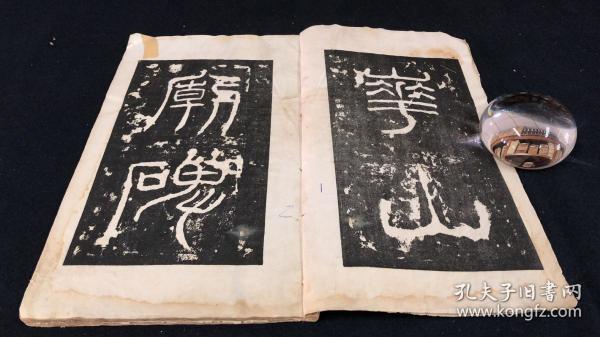 華山
廟碑
1
2
孔夫子旧书网
www.kongfz.com